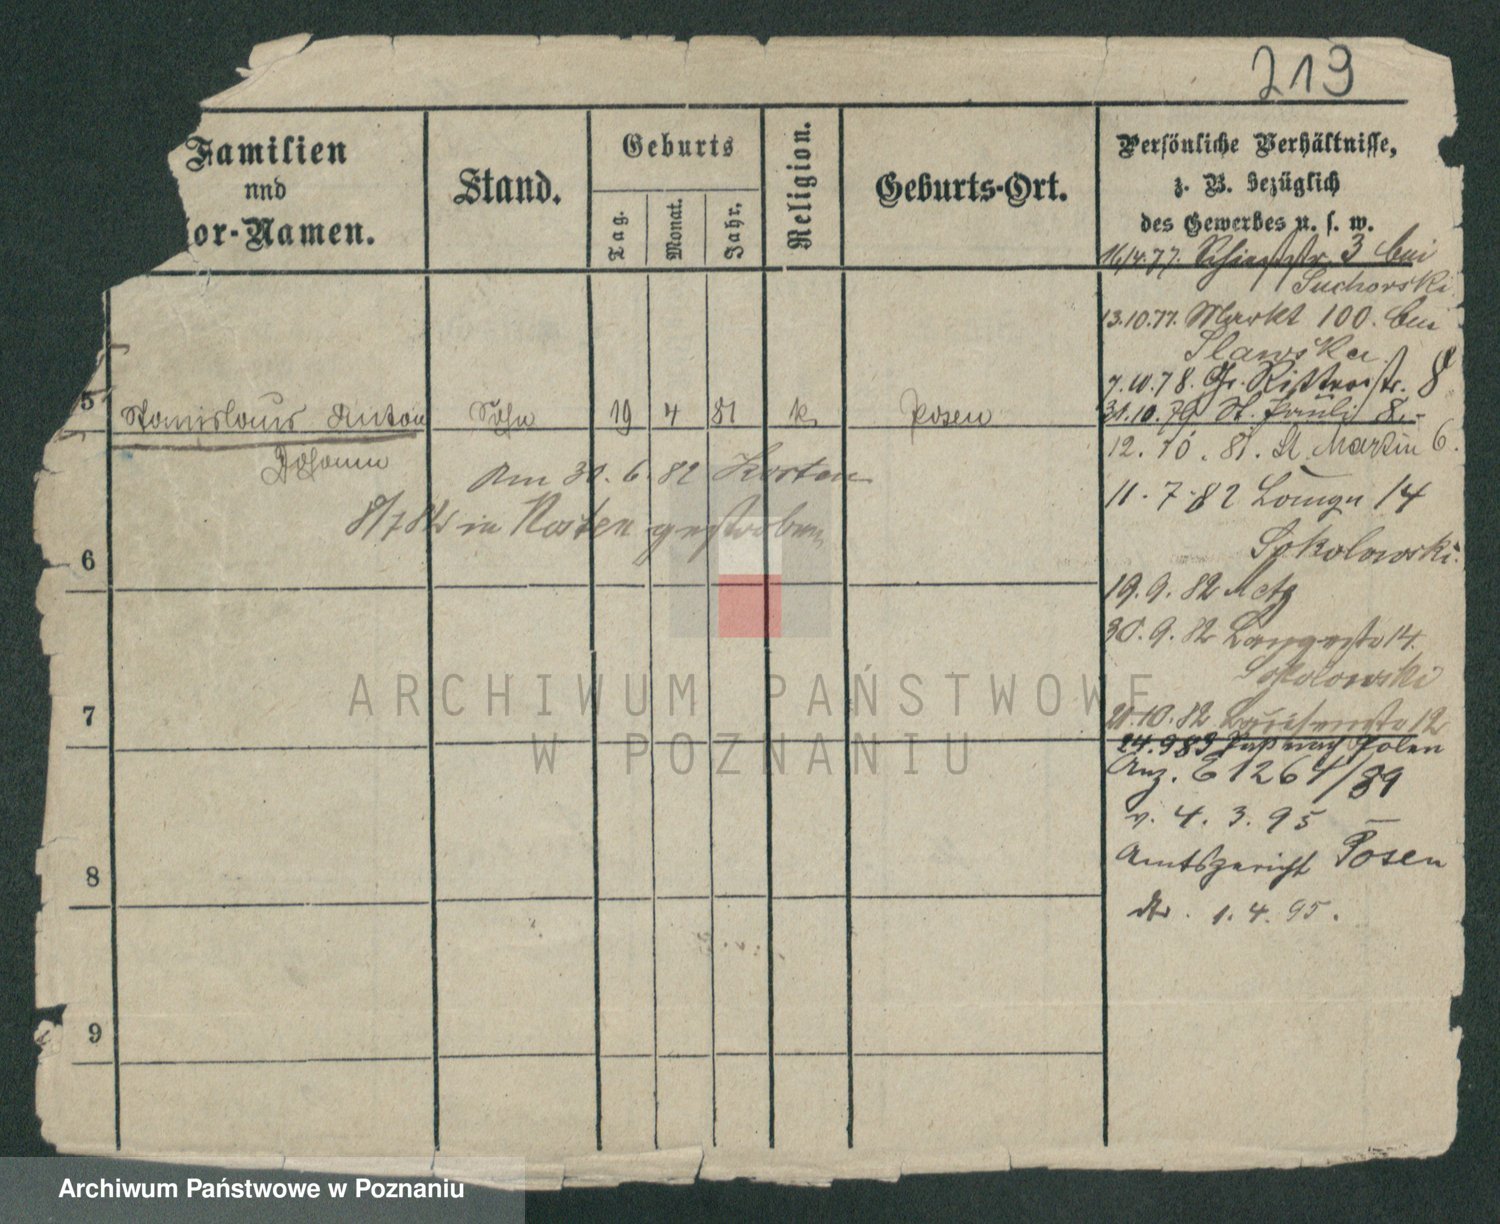 219
Familien
und
or-Namen.
Stand.
Geburts
Tag.
Monat.
Jahr.
Religion.
Geburts-Ort.
Persönliche Verhältnisse,
z. B. bezüglich
des Gewerbes u. s. w.
16/4.77. 3 bei
Suchorski
13.10.77. Markt 100. bei
Slawska
7.10.78. Gr. Ritterstr. 8
31.10.79 St. Pauli 8.
12. 10. 81. St Martin 6.
11. 7. 82 Lange 14
Sokolowski.
19. 9. 82 Metz
30. 9. 82 Langestr 14.
Sokolowski
21.10.82 12
24.9 83 Paß nach Polen
Anz. 1264/89
v. 4. 3. 95
Amtsgericht Posen
1. 4. 95.
5
Stanislaus Anton
Johann
Sohn
19
4
81
k
Posen
Am 30. 6. 82 Kosten
8/7 82 in Kosten gestorben
6
7
8
9
ARCHIWUM PAŃSTWOWE
W POZNANIU
Archiwum Państwowe w Poznaniu